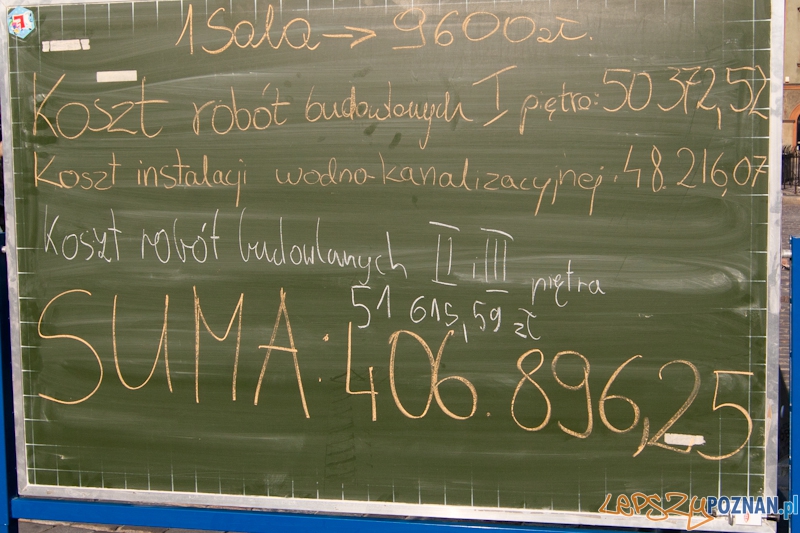 1 Sala → 9600 zł.
Koszt robót budowlanych I piętra: 50 372,52
Koszt instalacji wodno-kanalizacyjnej. 48.216,07
Koszt robót budowlanych II i III piętra
51 615,59 zł
SUMA: 406.896,25
LEPSZYPOZNAN.pl